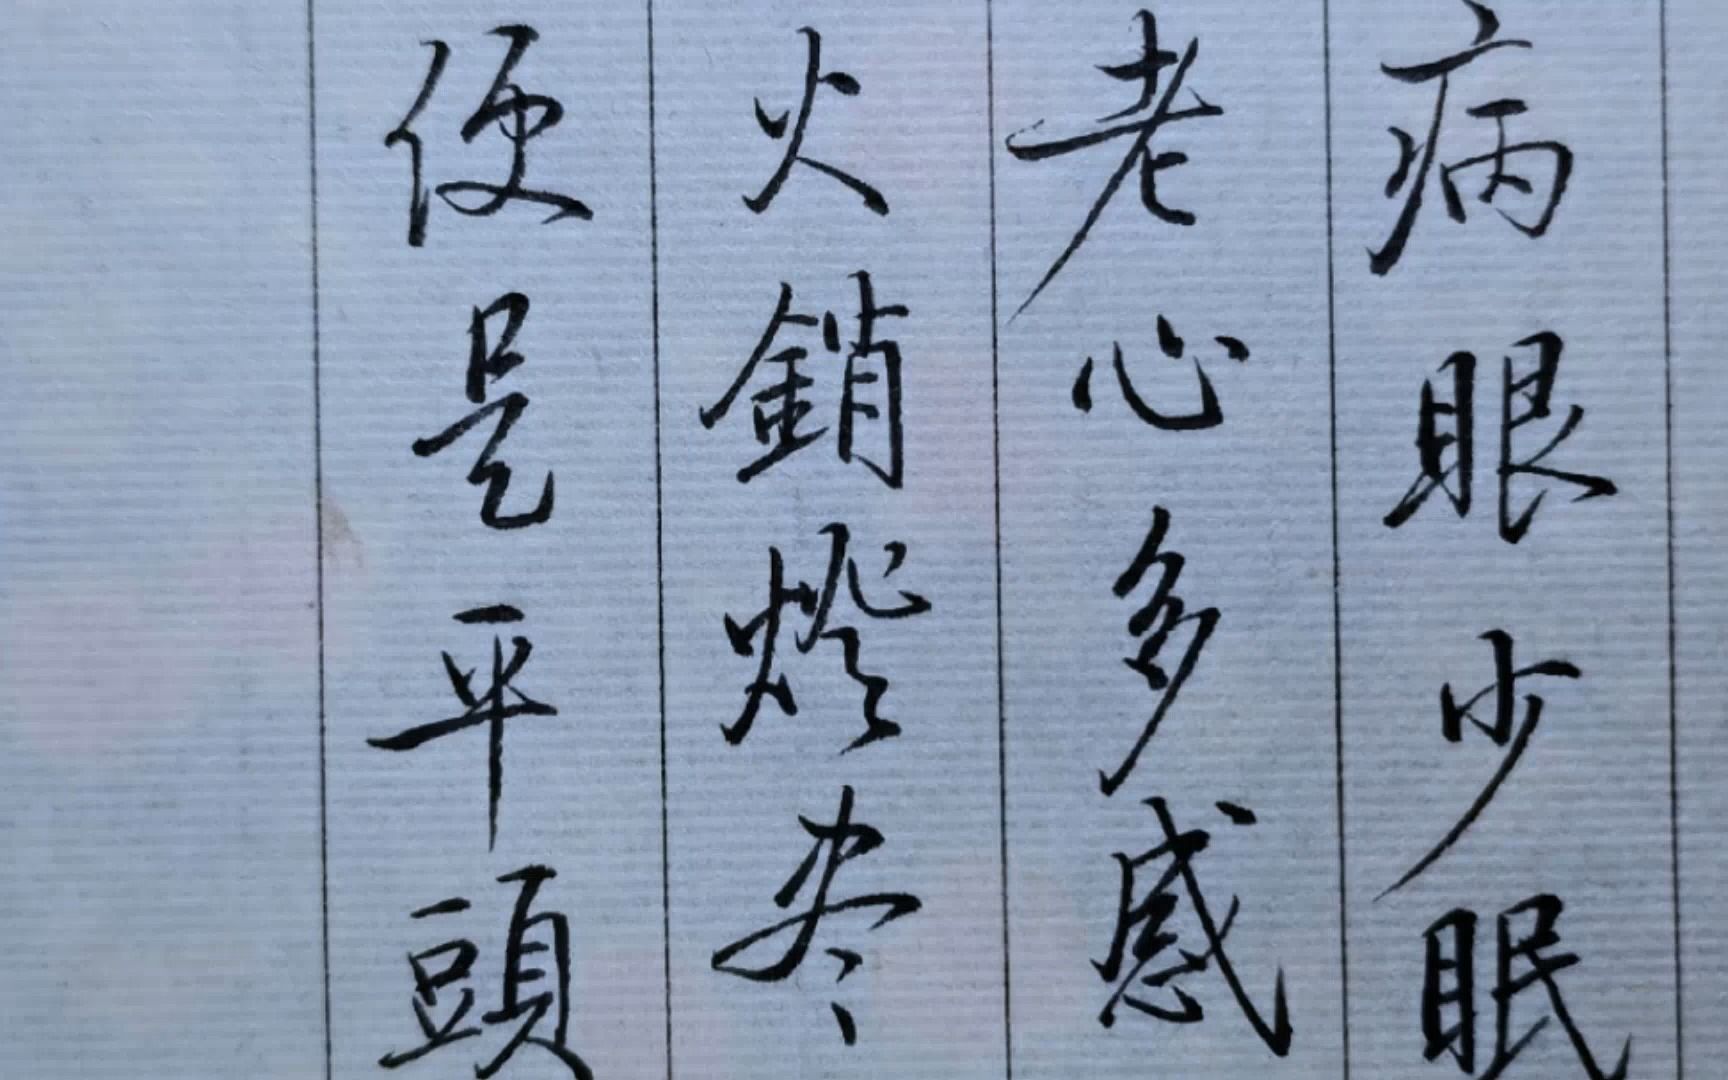 病眼少眠
老心多感
火銷燈尽
便是平頭